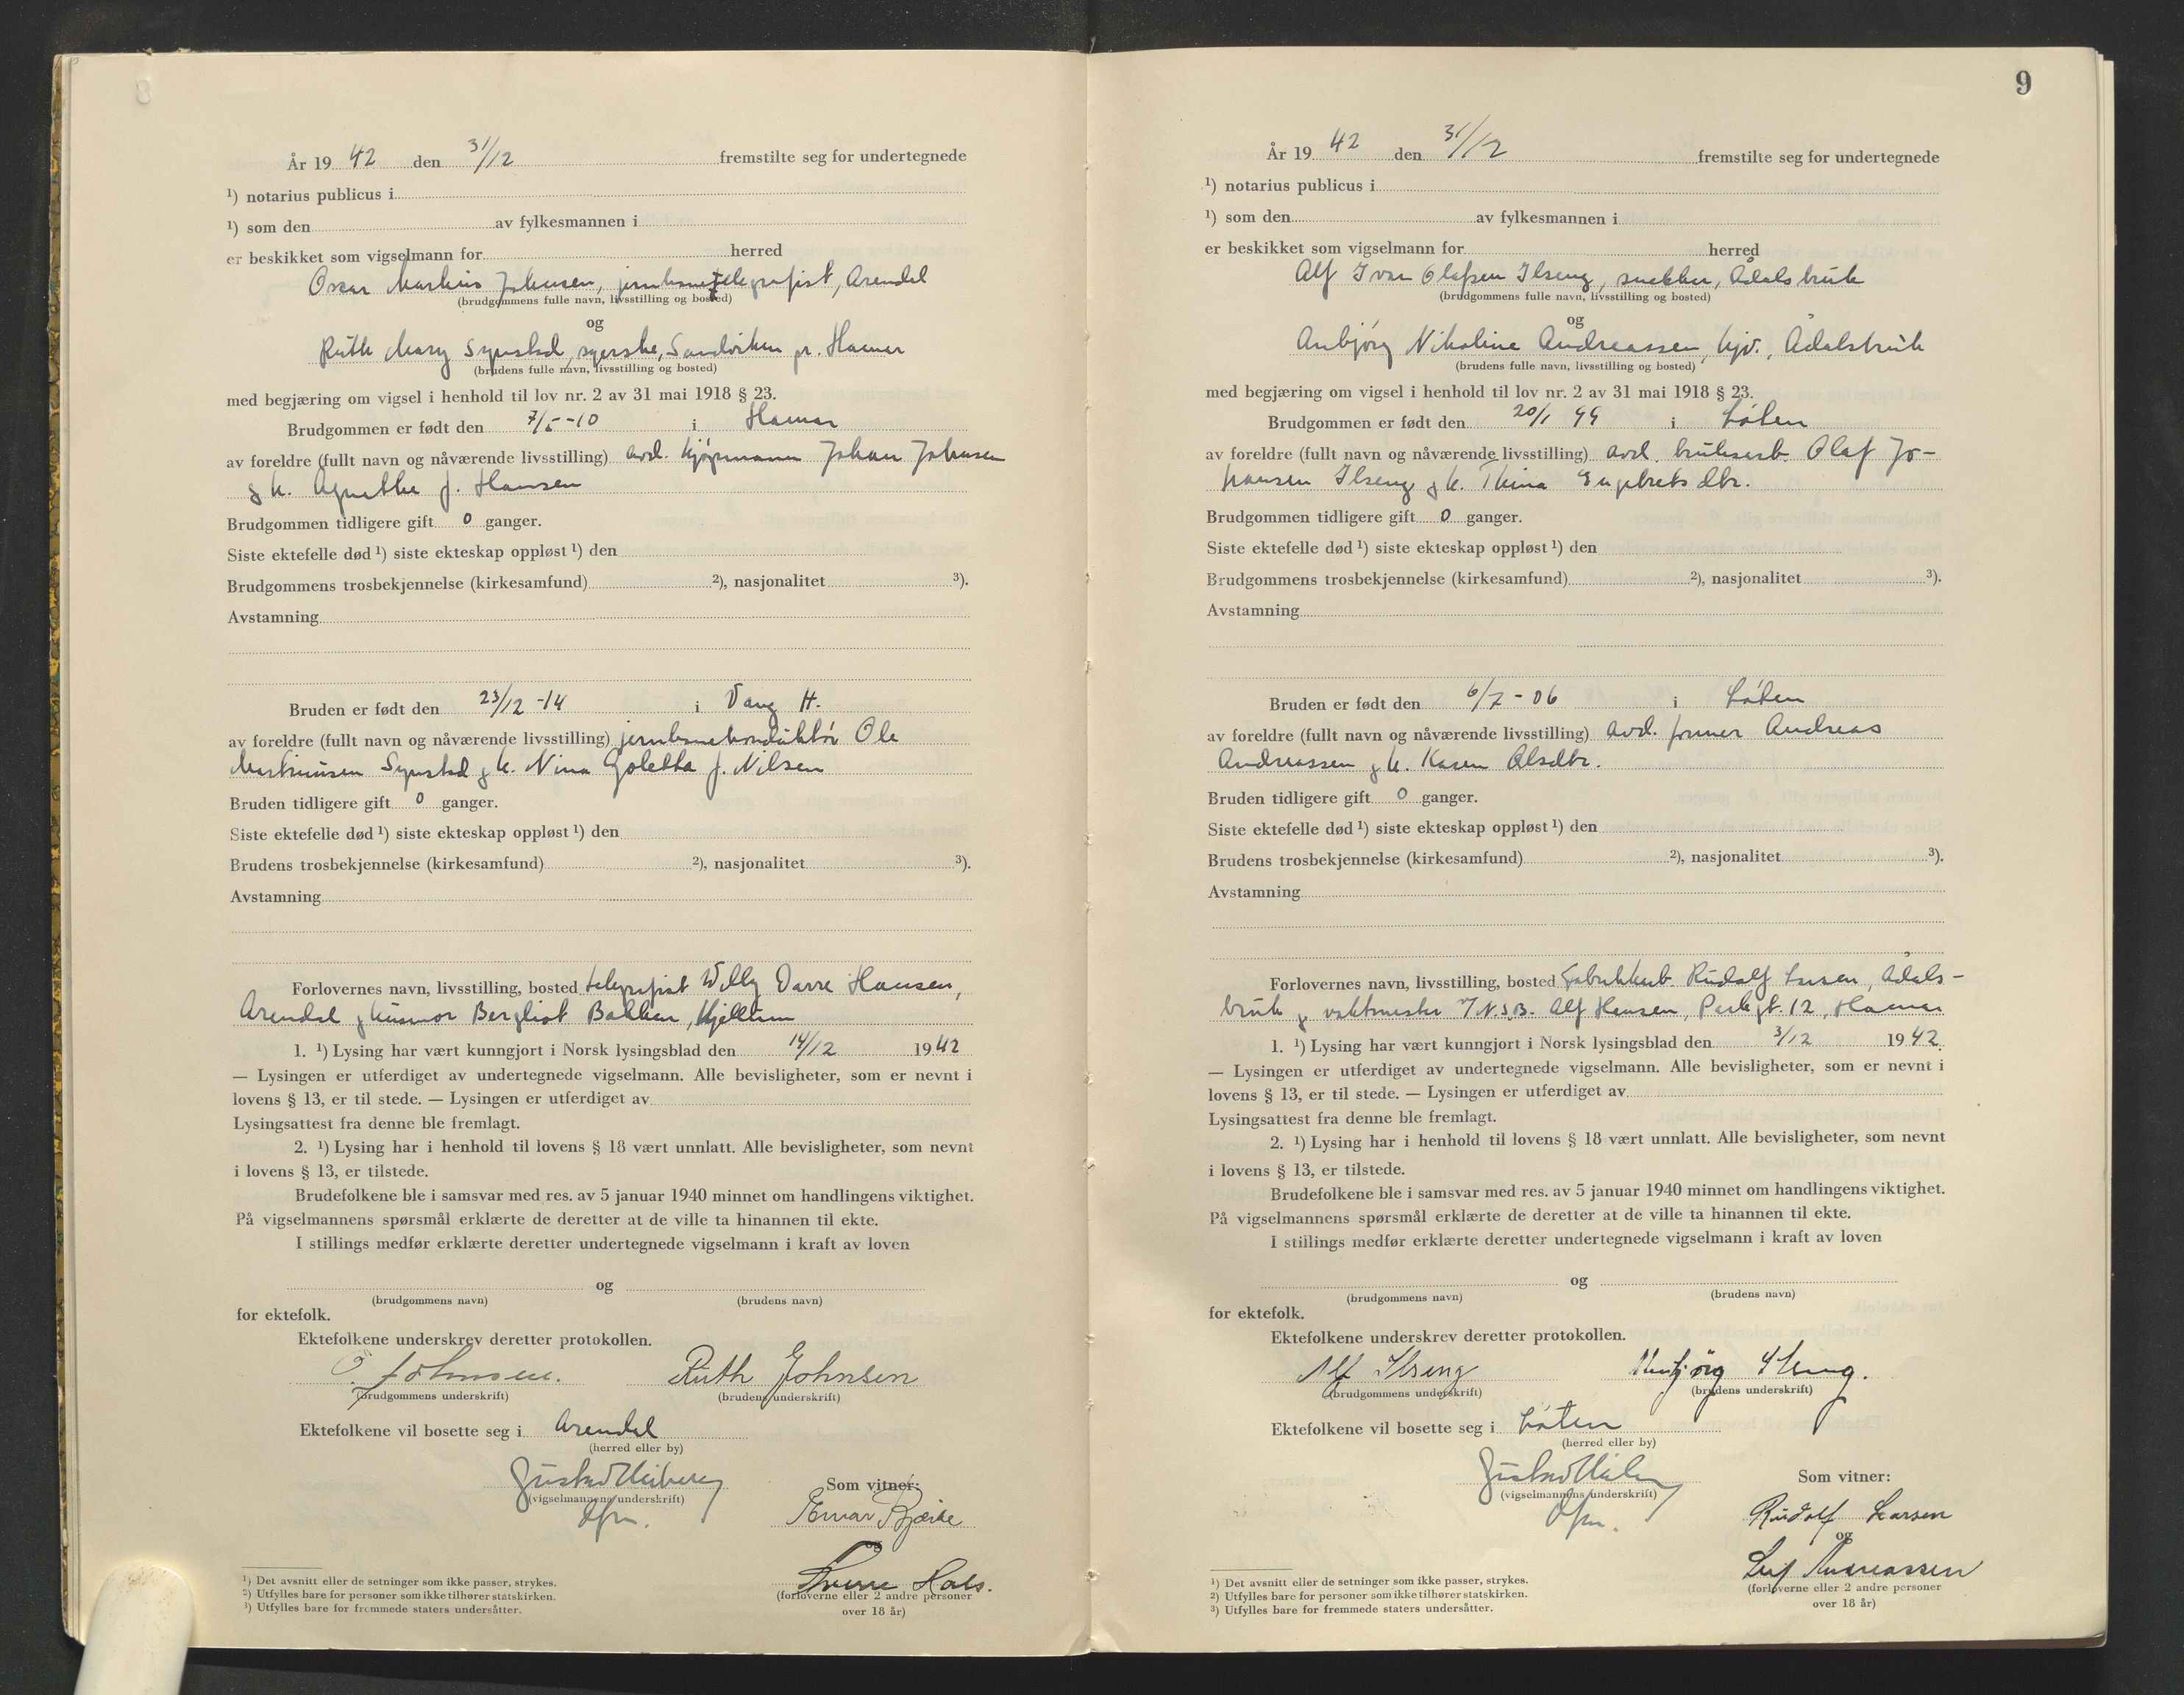 År 19 42 den 31/12 fremstilte seg for undertegnede
¹) notarius publicus i
¹) som den av fylkesmannen i
er beskikket som vigselmann for herred
Oscar Markus Johnsen, jernbanetelegrafist, Arendal
(brudgommens fulle navn, livsstilling og bosted)
og
Ruth Mary Synstad, syerske, Sandviken pr. Hamar
(brudens fulle navn, livsstilling og bosted)
med begjæring om vigsel i henhold til lov nr. 2 av 31 mai 1918 § 23.
Brudgommen er født den 7/5-10 i Hamar
av foreldre (fullt navn og nåværende livsstilling) avd. kjøpmann Johan Johnsen
g h. Agnethe f. Hansen
Brudgommen tidligere gift 0 ganger.
Siste ektefelle død ¹) siste ekteskap oppløst ¹) den
Brudgommens trosbekjennelse (kirkesamfund) ²), nasjonalitet ³).
Avstamning
Bruden er født den 23/12-14 i Vang H.
av foreldre (fullt navn og nåværende livsstilling) jernbanekonduktör Ole
Martinusen Synstad g h. Nina Goletta f. Nilsen
Bruden tidligere gift 0 ganger.
Siste ektefelle død ¹) siste ekteskap oppløst ¹) den
Brudens trosbekjennelse (kirkesamfund) ²), nasjonalitet ³).
Avstamning
Forlovernes navn, livsstilling, bosted telegrafist Willy Darre Hansen,
Arendal g husmor Bergliot Bakken, Hjellum
1. ¹) Lysing har vært kunngjort i Norsk lysingsblad den 14/12 1942
— Lysingen er utferdiget av undertegnede vigselmann. Alle bevisligheter, som er nevnt i
lovens § 13, er til stede. — Lysingen er utferdiget av
Lysingsattest fra denne ble fremlagt.
2. ¹) Lysing har i henhold til lovens § 18 vært unnlatt. Alle bevisligheter, som nevnt
i lovens § 13, er tilstede.
Brudefolkene ble i samsvar med res. av 5 januar 1940 minnet om handlingens viktighet.
På vigselmannens spørsmål erklærte de deretter at de ville ta hinannen til ekte.
I stillings medfør erklærte deretter undertegnede vigselmann i kraft av loven
og
(brudgommens navn) (brudens navn)
for ektefolk.
Ektefolkene underskrev deretter protokollen.
O. Johnsen. Ruth Johnsen
(brudgommens underskrift) (brudens underskrift)
Ektefolkene vil bosette seg i Arendal
(herred eller by)
Gustav Heiberg
(vigselmannens underskrift)
dfm.
Som vitner:
Einar Bjerke
og
Sverre Hals.
(forloverne eller 2 andre personer
over 18 år)
¹) Det avsnitt eller de setninger som ikke passer, strykes.
²) Utfylles bare for personer som ikke tilhører statskirken.
³) Utfylles bare for fremmede staters undersåtter.
9
År 19 42 den 31/12 fremstilte seg for undertegnede
¹) notarius publicus i
¹) som den av fylkesmannen i
er beskikket som vigselmann for herred
Alf Ivar Olafsen Ilseng, snekker, Ådalsbruk
(brudgommens fulle navn, livsstilling og bosted)
og
Anbjörg Nikoline Andreassen, hjv., Ådalsbruk
(brudens fulle navn, livsstilling og bosted)
med begjæring om vigsel i henhold til lov nr. 2 av 31 mai 1918 § 23.
Brudgommen er født den 20/1 99 i Löten
av foreldre (fullt navn og nåværende livsstilling) avd. bruksarb. Olaf Jo-
hansen Ilseng g h. Thina Engebretsdtr.
Brudgommen tidligere gift 0 ganger.
Siste ektefelle død ¹) siste ekteskap oppløst ¹) den
Brudgommens trosbekjennelse (kirkesamfund) ²), nasjonalitet ³).
Avstamning
Bruden er født den 6/7-06 i Löten
av foreldre (fullt navn og nåværende livsstilling) avd. former Andreas
Andreassen g h. Karen Olsdtr.
Bruden tidligere gift 0 ganger.
Siste ektefelle død ¹) siste ekteskap oppløst ¹) den
Brudens trosbekjennelse (kirkesamfund) ²), nasjonalitet ³).
Avstamning
Forlovernes navn, livsstilling, bosted fabrikkarb. Rudolf Larsen, Ådals-
bruk g vaktmester v/N.S.B. Alf Hansen, Parkgt. 12, Hamar
1. ¹) Lysing har vært kunngjort i Norsk lysingsblad den 3/12 1942.
— Lysingen er utferdiget av undertegnede vigselmann. Alle bevisligheter, som er nevnt i
lovens § 13, er til stede. — Lysingen er utferdiget av
Lysingsattest fra denne ble fremlagt.
2. ¹) Lysing har i henhold til lovens § 18 vært unnlatt. Alle bevisligheter, som nevnt
i lovens § 13, er tilstede.
Brudefolkene ble i samsvar med res. av 5 januar 1940 minnet om handlingens viktighet.
På vigselmannens spørsmål erklærte de deretter at de ville ta hinannen til ekte.
I stillings medfør erklærte deretter undertegnede vigselmann i kraft av loven
og
(brudgommens navn) (brudens navn)
for ektefolk.
Ektefolkene underskrev deretter protokollen.
Alf Ilseng Anbjörg Ilseng.
(brudgommens underskrift) (brudens underskrift)
Ektefolkene vil bosette seg i Löten
(herred eller by)
Gustav Heiberg
(vigselmannens underskrift)
dfm.
Som vitner:
Rudolf Larsen
og
Leif Andreassen
(forloverne eller 2 andre personer
over 18 år)
¹) Det avsnitt eller de setninger som ikke passer, strykes.
²) Utfylles bare for personer som ikke tilhører statskirken.
³) Utfylles bare for fremmede staters undersåtter.